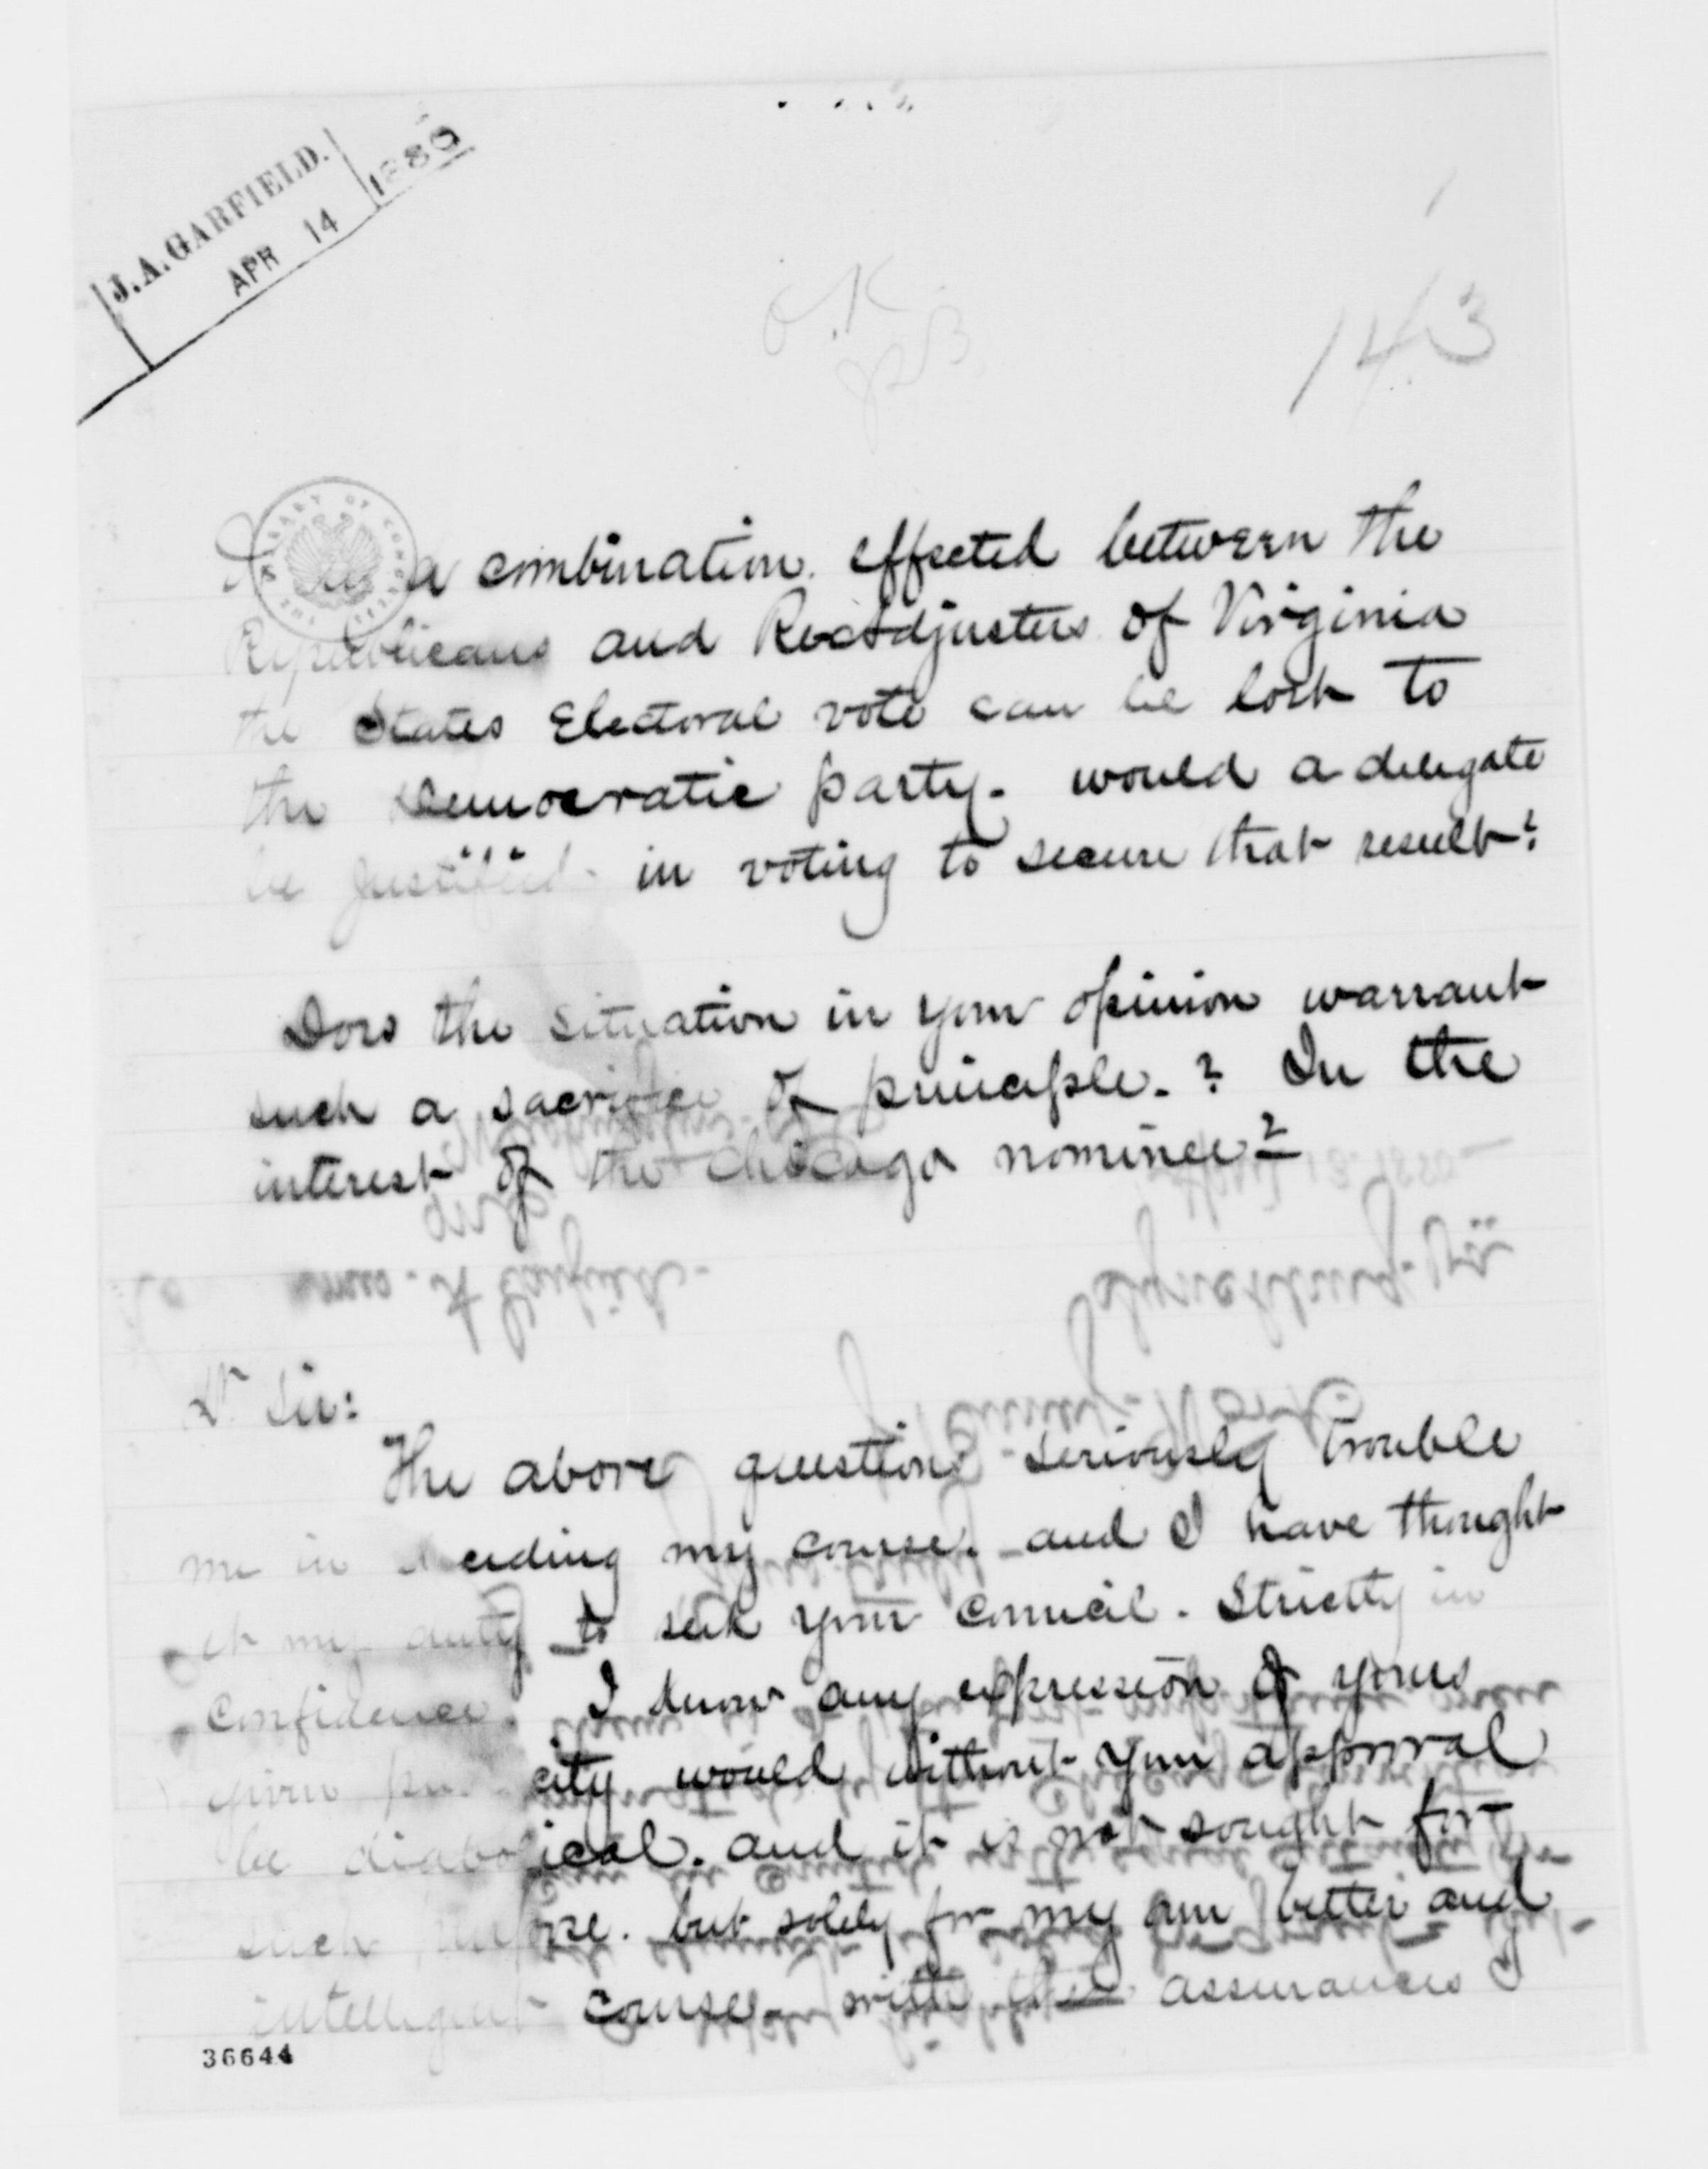 J. A. GARFIELD.
APR 14 1880
O.K.
143
LIBRARY OF CONGRESS
a combination effected between the
Republicans and Readjusters of Virginia
the States Electoral vote can be lost to
the Democratic party. would a delegate
be justified in voting to secure that result?
Does the situation in your opinion warrant
such a sacrifice of principle.? In the
interest of the Chicago nominee?
Dr Sir:
The above questions seriously trouble
me in deciding my course. and I have thought
it my duty to seek your council. Strictly in
Confidence. I know any expression of yours
given publicity would without your approval
be diabolical. and it is not sought for
such purpose. but solely for my own better and
intelligent course. with assurances I
36644